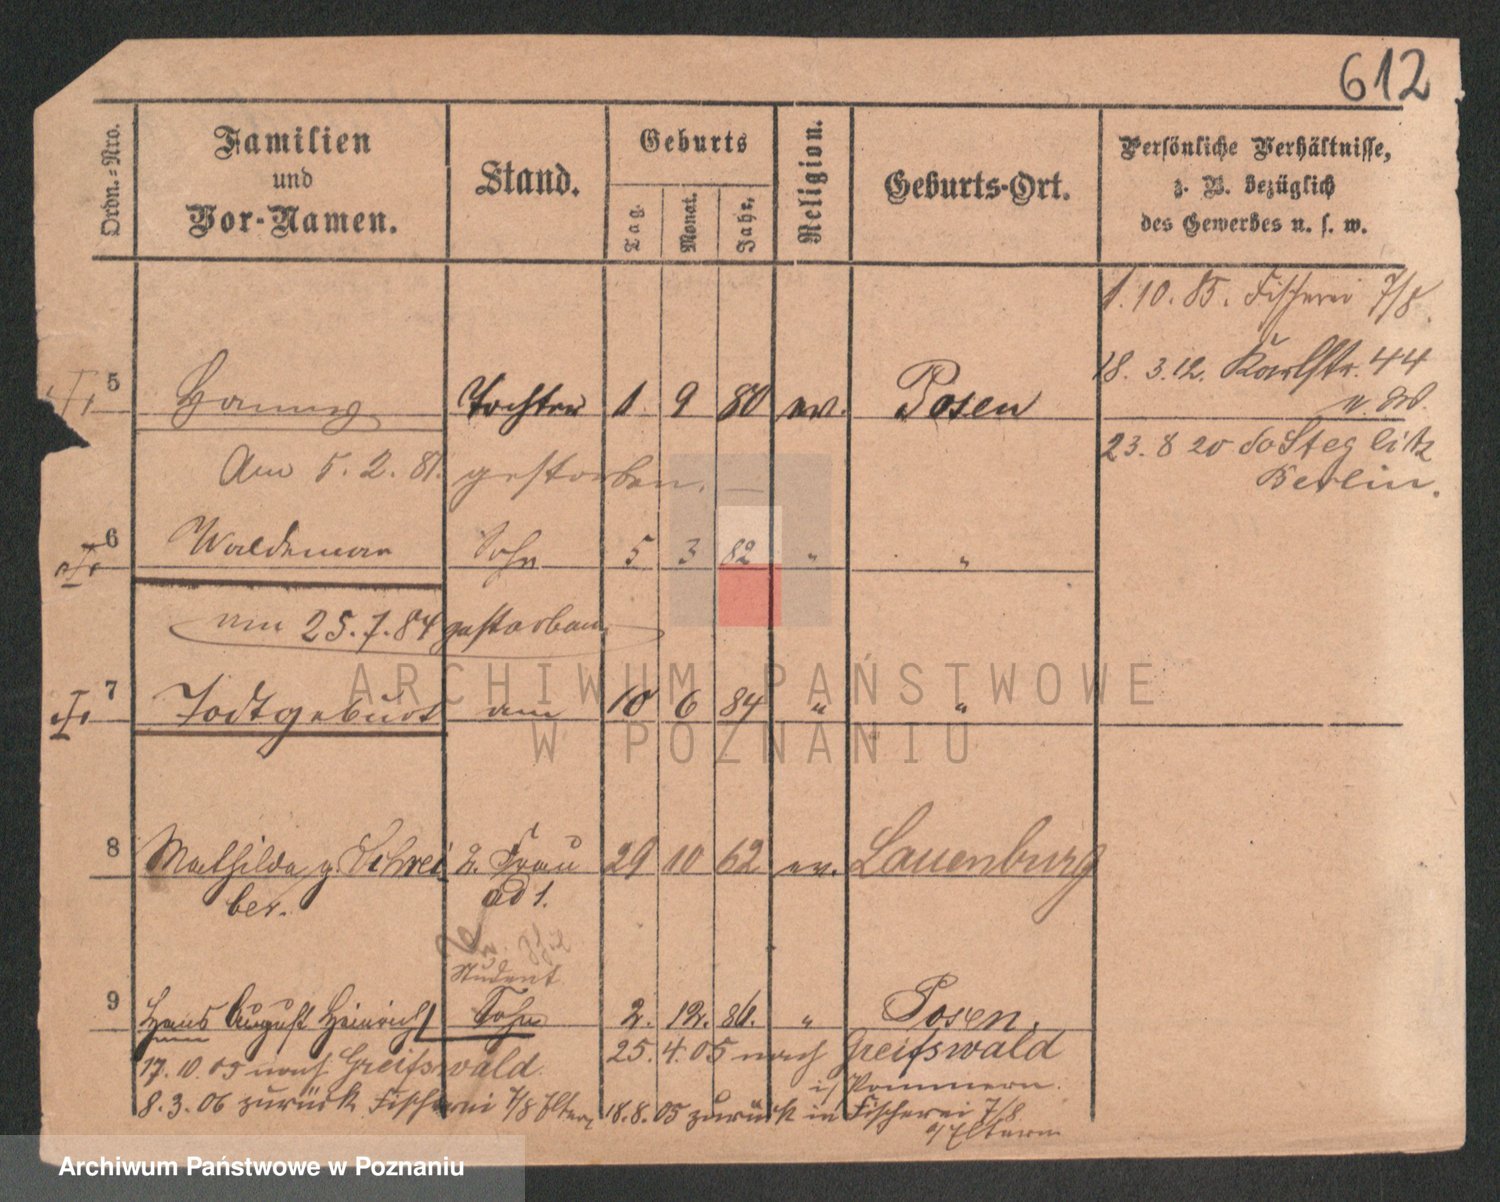 612
Ordn.-Nro.
Familien
und
Vor-Namen.
Stand.
Geburts
Tag.
Monat.
Jahr.
Religion.
Geburts-Ort.
Persönliche Verhältnisse,
z. B. bezüglich
des Gewerbes u. s. w.
1. 10. 85. Fischerei 7/8.
18. 3. 12. Karlstr. 44
5 Tochter 1 9 80 ev. Posen
23. 8 20 Steglitz
Berlin.
Am 5. 2. 81. gestorben.
6 Waldemar Sohn 5 3 82 " "
am 25. 7. 84 gestorben
7 Todtgeburt am 10 6 84 " "
8 Mathilde g. Schrei- 2. Frau 29 10 62 ev. Lauenburg
ber. ad 1.
Student
9 Hans August Heinrich Sohn 2. 12. 86. " Posen.
17. 10. 05 nach Greifswald. 25. 4. 05 nach Greifswald
i/ Pommern.
8. 3. 06 zurück Fischerei 7/8 Eltern 18. 8. 05 zurück in Fischerei 7/8
b/ Eltern
ARCHIWUM PAŃSTWOWE
W POZNANIU
Archiwum Państwowe w Poznaniu